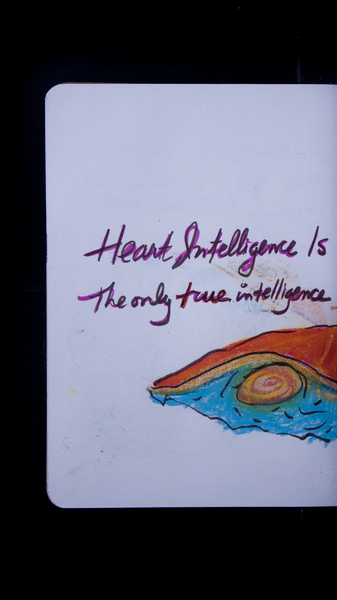 Heart Intelligence Is
The only true intelligence